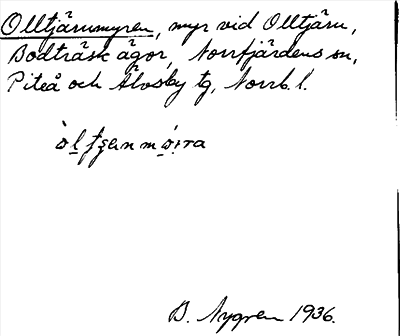 Olltjärnmyren, myr vid Olltjärn,
Bodträsk ägor, Norrfjärdens sn,
Piteå och Älvsby tg, Norrb. l.
B. Nygren 1936.